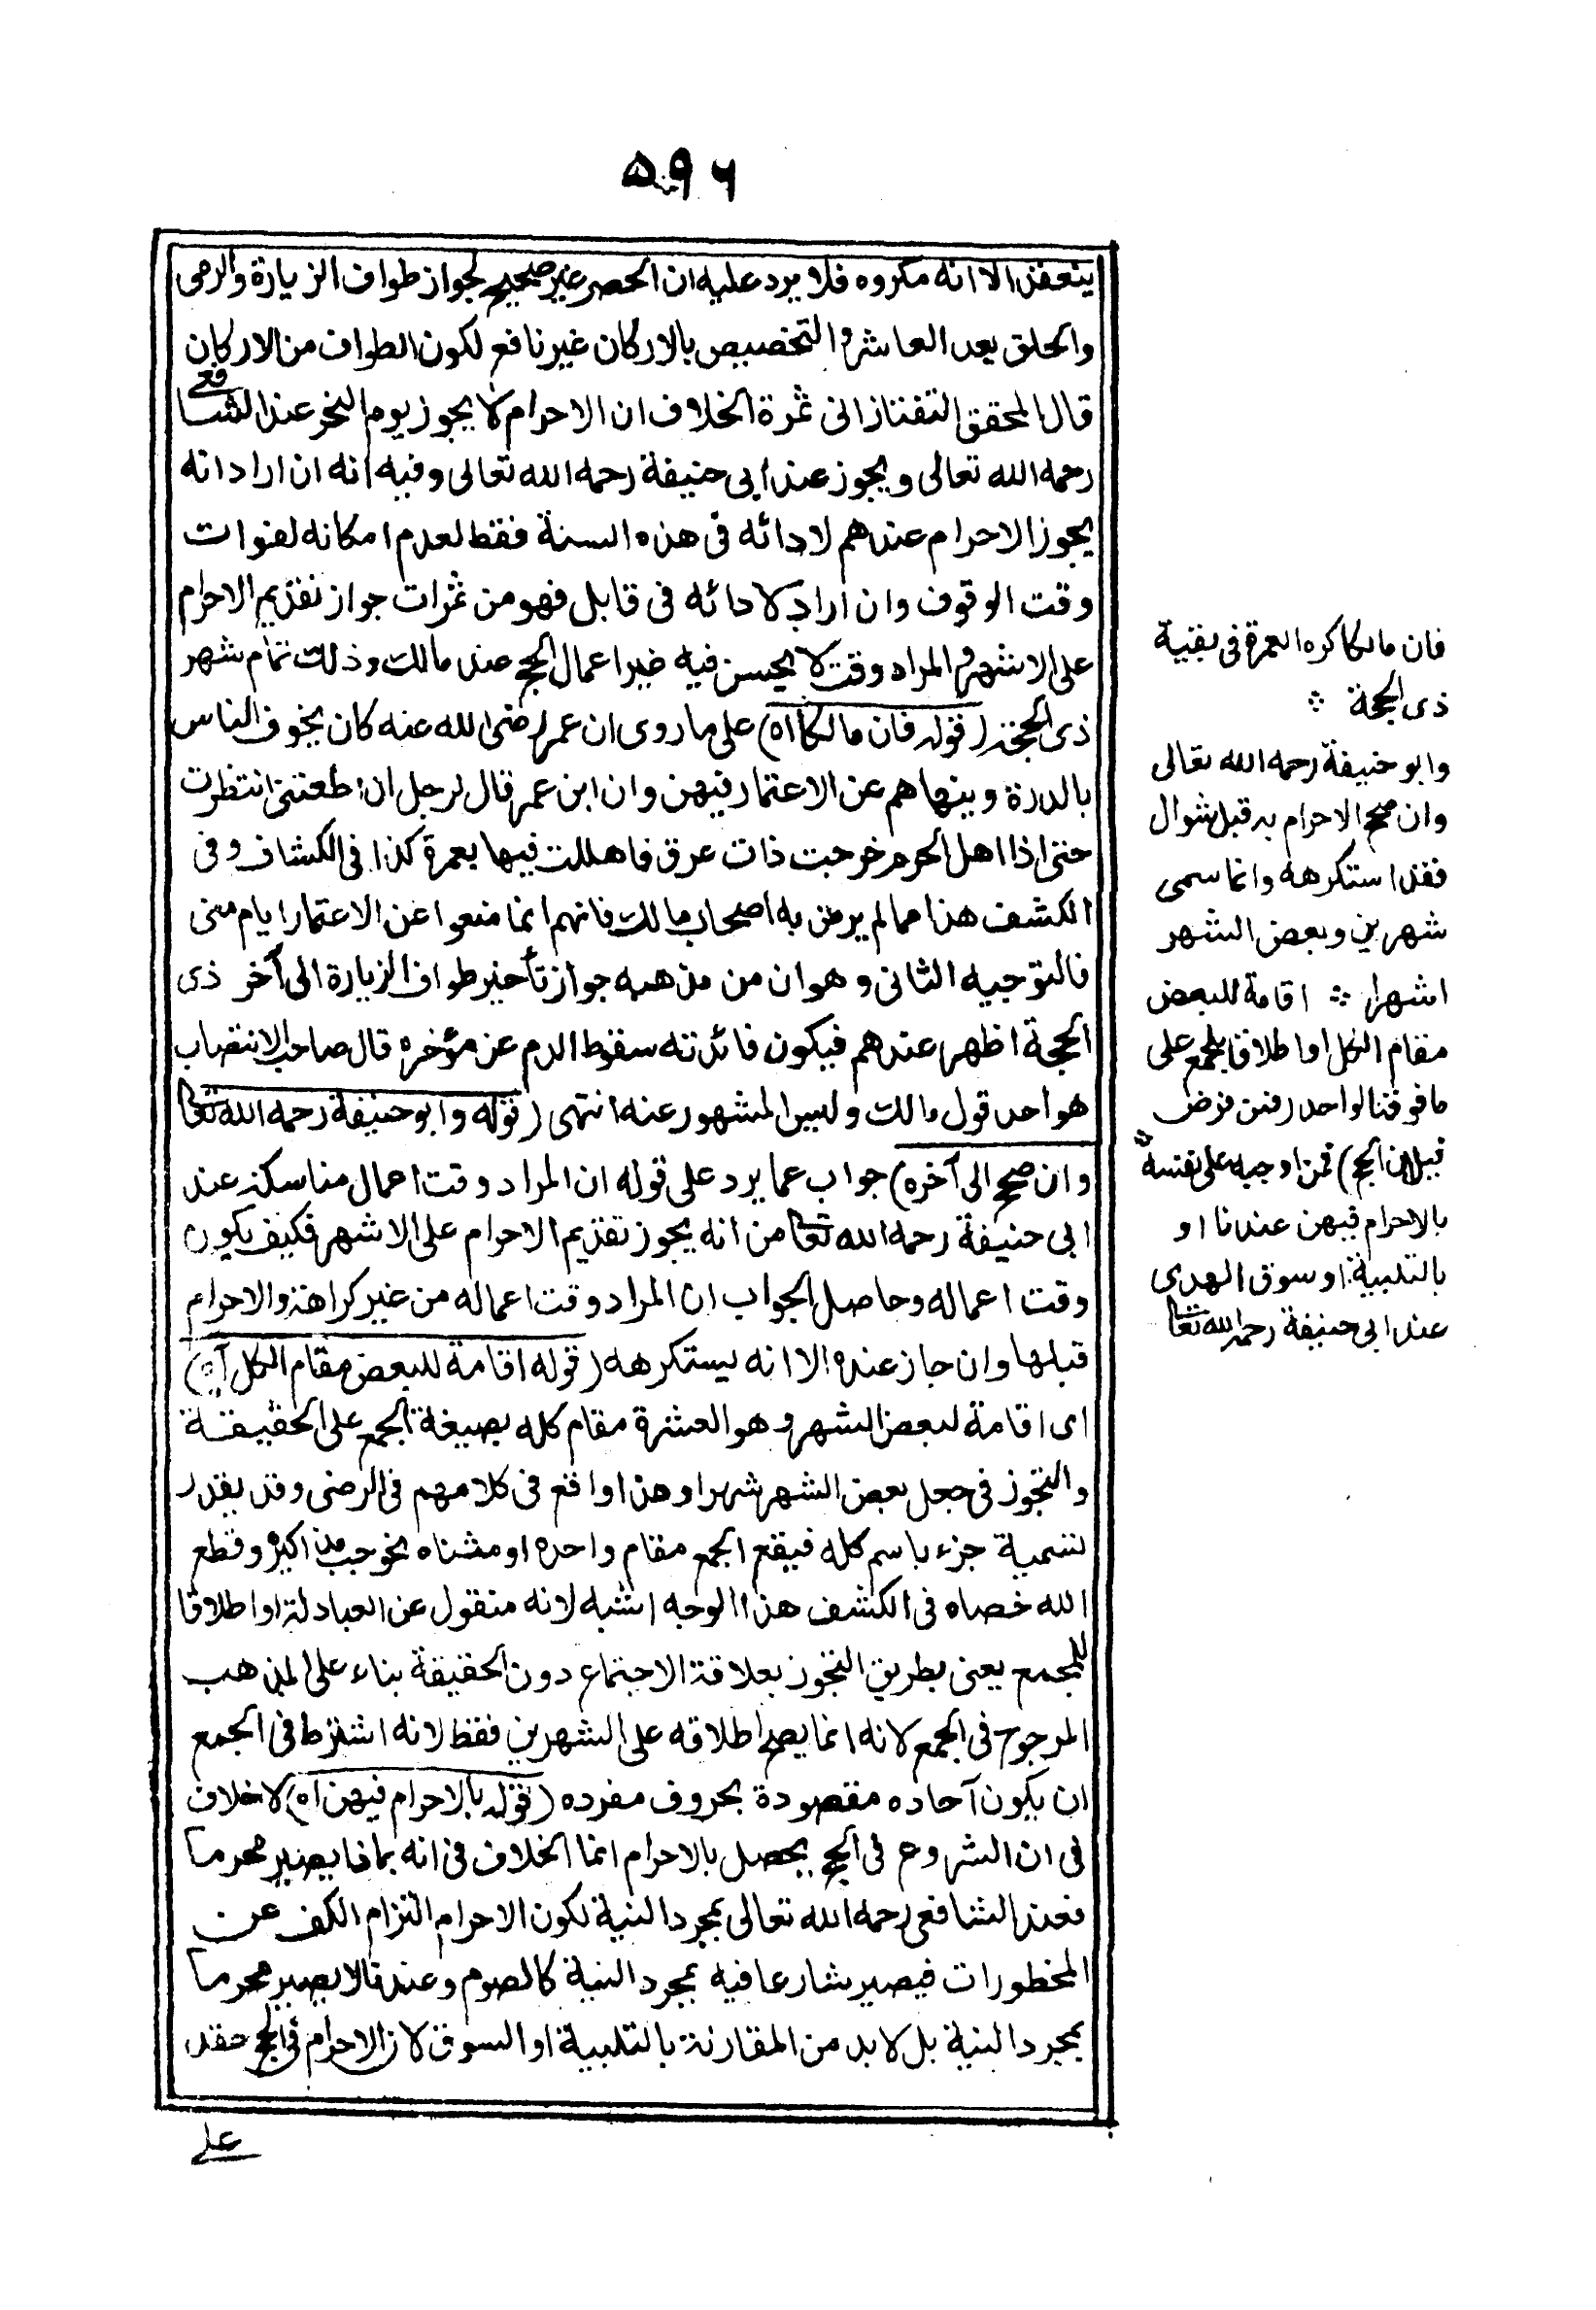 ۵۹۶
ينعقد الا انه مكروه فلا يرد عليه ان الحصر غير صحيح لجواز طواف الزيارة والرمى
والحلق بعد العاشر والتخصيص بالاركان غير نافع لكون الطواف من الاركان
قال المحقق التفتازانى ثمرة الخلاف ان الاحرام لا يجوز يوم النحر عند الشافعى
رحمه الله تعالى ويجوز عند ابى حنيفة رحمه الله تعالى وفيه انه ان اراد انه
يجوز الاحرام عندهم لادائه فى هذه السنة فقط لعدم امكانه لفوات
وقت الوقوف وان اراد لادائه فى قابل فهو من ثمرات جواز تقديم الاحرام
على الاشهر والمراد وقت لا يحسن فيه غير اعمال الحج عند مالك وذلك تمام شهر
ذى الحجة (قوله فان مالكا اه) على ما روى ان عمر رضى الله عنه كان يخوف الناس
بالدرة وينهاهم عن الاعتمار فيهن وان ابن عمر قال لرجل ان اطعتنى انتظرت
حتى اذا اهل المحرم خرجت ذات عرق فاهللت فيها بعمرة كذا فى الكشاف وفى
الكشف هذا مما لم يرض به اصحاب مالك فانهم انما منعوا عن الاعتمار ايام منى
فالتوجيه الثانى وهو ان من مذهبه جواز تأخير طواف الزيارة الى آخر ذى
الحجة اظهر عندهم فيكون فائدته سقوط الدم عن مؤخره قال صاحب الانتصاب
هو احد قول مالك وليس المشهور عنه انتهى (قوله وابو حنيفة رحمه الله تعا
وان صحح الى آخره) جواب عما يرد على قوله ان المراد وقت اعمال مناسكه عند
ابى حنيفة رحمه الله تعا من انه يجوز تقديم الاحرام على الاشهر فكيف يكون
وقت اعماله وحاصل الجواب ان المراد وقت اعماله من غير كراهة والاحرام
قبلها وان جاز عنده الا انه يستكرهه (قوله اقامة للبعض مقام الكل آه)
اى اقامة لبعض الشهر وهو العشرة مقام كله بصيغة الجمع على الحقيقة
والتجوز فى جعل بعض الشهر شهرا وهذا واقع فى كلامهم فى الرضى وقد يقدر
تسمية جزء باسم كله فيقع الجمع مقام واحده او مثناه نحو جب مذاكيره وقطع
الله خصاه فى الكشف هذا الوجه اشبه لانه منقول عن العبادلة او اطلاقا
للجمع يعنى بطريق التجوز بعلاقة الاجتماع دون الحقيقة بناء على المذهب
المرجوح فى الجمع لانه انما يصح اطلاقه على الشهرين فقط لانه اشترط فى الجمع
ان يكون آحاده مقصودة بحروف مفرده (قوله بالاحرام فيهن اه) لا خلاف
فى ان الشروع فى الحج يحصل بالاحرام انما الخلاف فى انه بماذا يصير محرما
فعند الشافعى رحمه الله تعالى بمجرد النية لكون الاحرام التزام الكف عن
المحظورات فيصير شارعا فيه بمجرد النية كالصوم وعندنا لا يصير محرما
بمجرد النية بل لا بد من المقارنة بالتلبية او السوق لان الاحرام فى الحج عقد
على
فان مالكا كره العمرة فى بقية
ذى الحجة
وابو حنيفة رحمه الله تعالى
وان صحح الاحرام به قبل شوال
فقد استكرهه وانما سمى
شهرين وبعض الشهر
اشهرا اقامة للبعض
مقام الكل او اطلاقا للجمع على
ما فوق الواحد (فمن فرض
فيهن الحج) فمن اوجبه على نفسه
بالاحرام فيهن عندنا او
بالتلبية او سوق الهدى
عند ابى حنيفة رحمه الله تعا